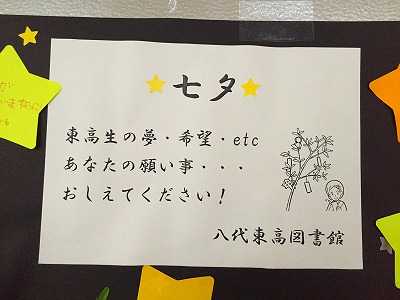 七夕
東高生の夢・希望・etc
あなたの願い事・・・
おしえてください！
八代東高図書館